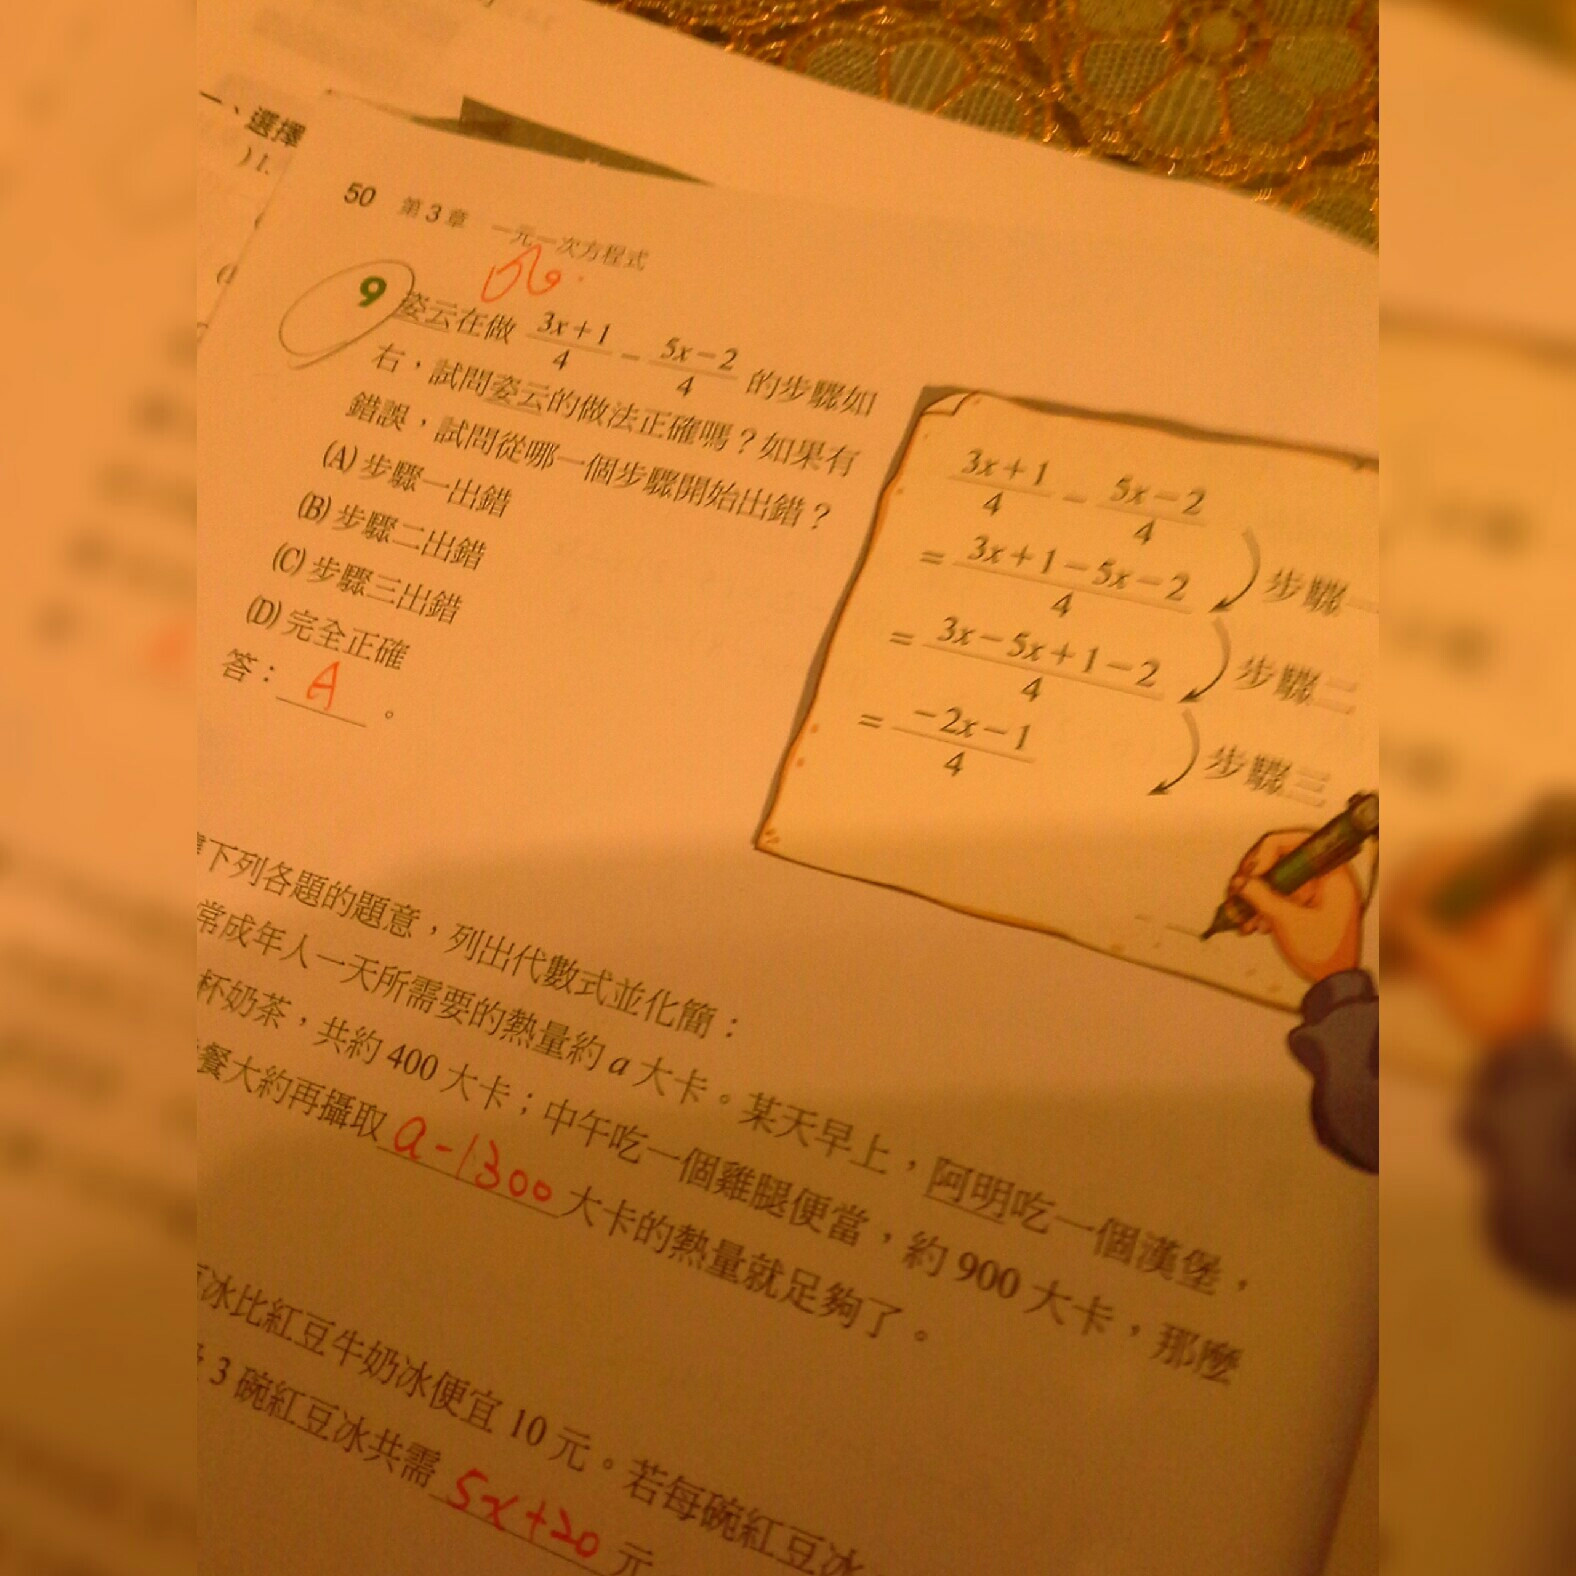 一、選擇
) 1.
50 第3章 一元一次方程式
9 姿云在做 (3x+1)/4 - (5x-2)/4 的步驟如
右，試問姿云的做法正確嗎？如果有
錯誤，試問從哪一個步驟開始出錯？
(A) 步驟一出錯
(B) 步驟二出錯
(C) 步驟三出錯
(D) 完全正確
答：A。
(3x+1)/4 - (5x-2)/4
= (3x+1-5x-2)/4 步驟一
= (3x-5x+1-2)/4 步驟二
= (-2x-1)/4 步驟三
下列各題的題意，列出代數式並化簡：
常成年人一天所需要的熱量約 a 大卡。某天早上，阿明吃一個漢堡，
杯奶茶，共約 400 大卡；中午吃一個雞腿便當，約 900 大卡，那麼
餐大約再攝取 a-1300 大卡的熱量就足夠了。
冰比紅豆牛奶冰便宜 10 元。若每碗紅豆冰
3 碗紅豆冰共需 5x+20 元